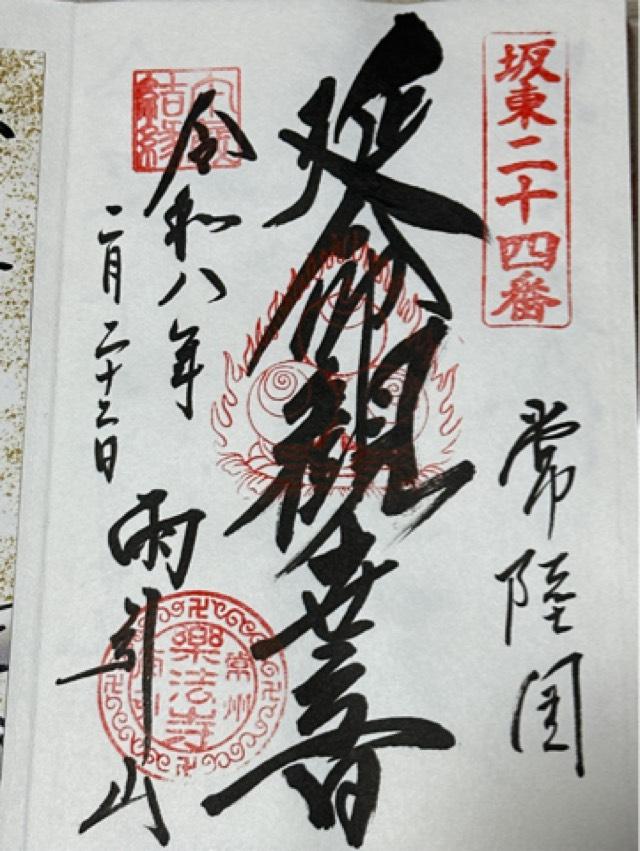 坂東二十四番
常陸国
延命観世音
令和八年
二月二十三日
雨引山
楽法寺
常州
結縁